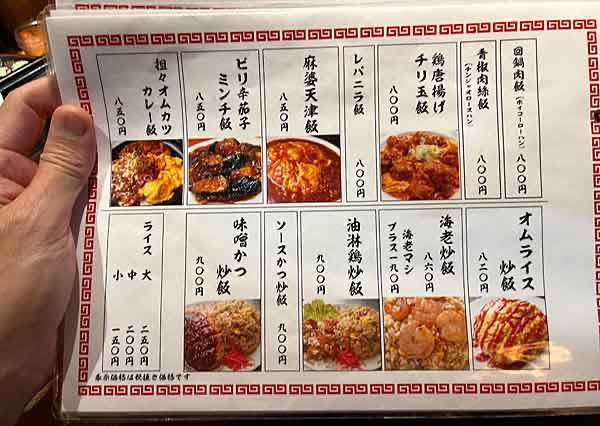 回鍋肉飯
(ホイコーローハン)
八〇〇円
青椒肉絲飯
(チンジャオロースハン)
八〇〇円
鶏唐揚げ
チリ玉飯
八〇〇円
レバニラ飯
八〇〇円
麻婆天津飯
八五〇円
ピリ辛茄子
ミンチ飯
八五〇円
担々オムカツ
カレー飯
八五〇円
オムライス
炒飯
八二〇円
海老炒飯
八六〇円
海老マシ
プラス一九〇円
油淋鶏炒飯
九〇〇円
ソースかつ炒飯
九〇〇円
味噌かつ
炒飯
九〇〇円
ライス
大 二五〇円
中 二〇〇円
小 一五〇円
表示価格は税抜き価格です